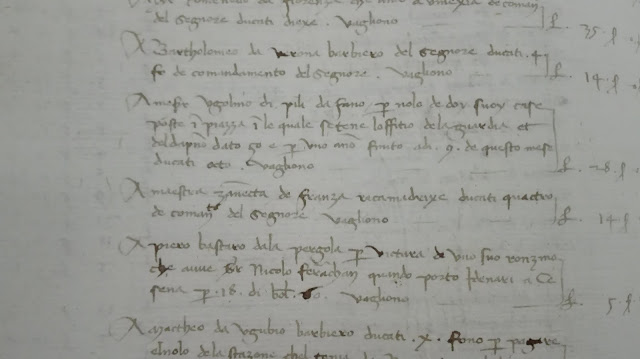 del Segnore ducati diexe . vagliono
L. 35. s
A Bartholomeo da verona barbiero del Segnore ducati . 4
fo de comandamento del Segnore . vagliono
L. 14. s
A mesr ugolino di pili da fano p nolo de doy suoy case
poste i piazza i le quale se tene loffitio dela guardia et
del dapno dato 50 e p uno ano finito adi . 9. de questo mese
ducati octo . vagliono
L. 28. s
A maestra zanecta de franza racamadrixe ducati quactro
de coman.to del Segnore vagliono
L. 14 s
A piero bastaro dala pergola p victura de uno suo ronzino
che avve Sr Nicolo ferachan quando porto i denari a Ce
sena p . 18. di bol. 60. vagliono
L. 5. s
A Mattheo da ugubio barbiero ducati . x. fono p pagare
el nolo dela stazone chel